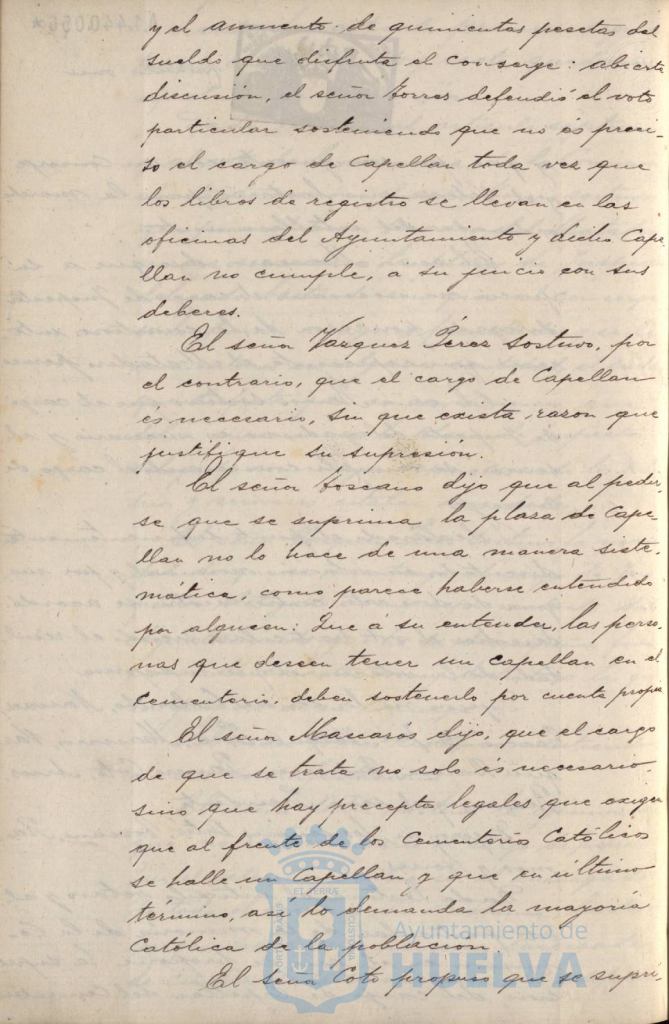 y el aumento de quinientas pesetas del
sueldo que disfruta el conserge: abierta
discusión, el señor Torres defendió el voto
particular sosteniendo que no és preci-
so el cargo de Capellan toda vez que
los libros de registro se llevan en las
oficinas del Ayuntamiento y dicho Cape
llan no cumple, á su juicio con sus
deberes.
El señor Vazquez Pérez sostuvo, por
el contrario, que el cargo de Capellan
és necesario, sin que exista razon que
justifique su supresión.
El señor Toscano dijo que al pedir-
se que se suprima la plaza de Cape-
llan no lo hace de una manera siste-
mática, como parece haberse entendido
por alguien: Que á su entender, las perso-
nas que deseen tener un capellan en el
cementerio, deben sostenerlo por cuenta propia
El señor Mascarós dijo, que el cargo
de que se trata no solo és necesario,
sino que hay preceptos legales que exigen
que al frente de los Cementerios Católicos
se halle un Capellan y que en último
término, así lo demanda la mayoría
Católica de la población.
El señor Coto propuso que se supri-
Ayuntamiento de
HUELVA